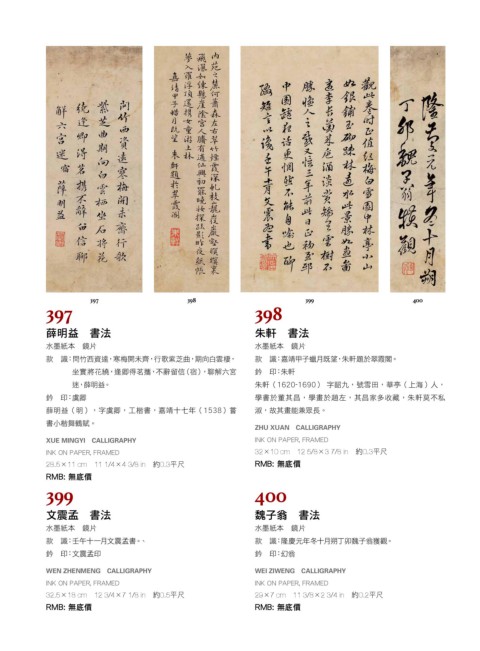 問竹西資遠寒梅開未齊行歌
紫芝曲期向白雲栖坐石將花
繞逢卿得名攜不辭留信宿聊
解六宮迷 薛明益
嘉靖甲子蜡月既望 朱軒題於翠霞閣
觀此卷時正值紅梅白雪園中林亭小山
如銀鋪玉砌疎林遠水此景勝如畫圖
隆慶元年冬十月朔
丁卯魏子翁獲觀
397
398
399
400
397
薛明益 書法
水墨紙本 鏡片
款 識：問竹西資遠，寒梅開未齊，行歌紫芝曲，期向白雲棲，
坐實將花繞，逢卿得名攜，不辭留信（宿），聊解六宮
迷，薛明益。
鈐 印：虞卿
薛明益（明），字虞卿，工楷書，嘉靖十七年（1538）嘗
書小楷舞鶴賦。
XUE MINGYI CALLIGRAPHY
INK ON PAPER, FRAMED
28.5×11 cm 11 1/4×4 3/8 in 約0.3平尺
RMB: 無底價
398
朱軒 書法
水墨紙本 鏡片
款 識：嘉靖甲子蠟月既望，朱軒題於翠霞閣。
鈐 印：朱軒
朱軒（1620-1690） 字韶九，號雪田，華亭（上海）人，
學書於董其昌，學畫於趙左，其昌家多收藏，朱軒莫不私
淑，故其畫能兼眾長。
ZHU XUAN CALLIGRAPHY
INK ON PAPER, FRAMED
32×10 cm 12 5/8×3 7/8 in 約0.3平尺
RMB: 無底價
399
文震孟 書法
水墨紙本 鏡片
款 識：壬午十一月文震孟書。、
鈐 印：文震孟印
WEN ZHENMENG CALLIGRAPHY
INK ON PAPER, FRAMED
32.5×18 cm 12 3/4×7 1/8 in 約0.5平尺
RMB: 無底價
400
魏子翁 書法
水墨紙本 鏡片
款 識：隆慶元年冬十月朔丁卯魏子翁獲觀。
鈐 印：幻翁
WEI ZIWENG CALLIGRAPHY
INK ON PAPER, FRAMED
29×7 cm 11 3/8×2 3/4 in 約0.2平尺
RMB: 無底價